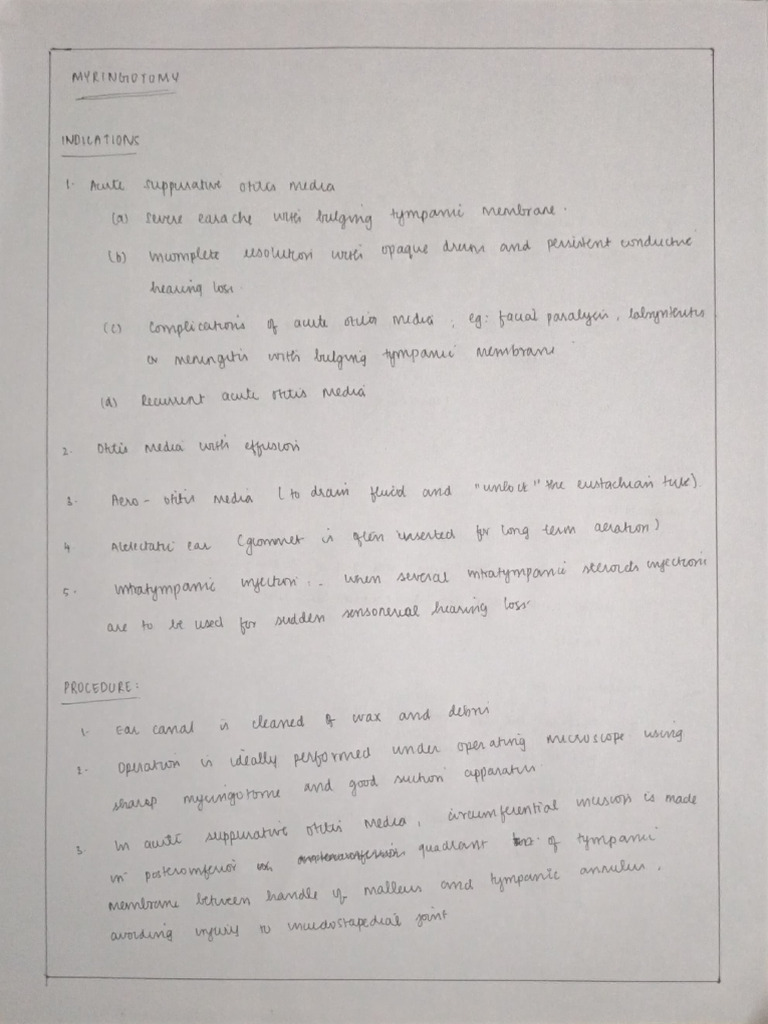 MYRINGOTOMY
INDICATIONS
1. Acute suppurative otitis media
(a) Severe earache with bulging tympanic membrane.
(b) Incomplete resolution with opaque drum and persistent conductive
hearing loss
(c) Complications of acute otitis media, eg: facial paralysis, labyrinthitis
or meningitis with bulging tympanic membrane
(d) Recurrent acute otitis media
2. Otitis media with effusion
3. Aero-otitis media (to drain fluid and "unlock" the eustachian tube)
4 Atelectatic ear (grommet is often inserted for long term aeration)
5. Intratympanic injection:- when several intratympanic steroids injections
are to be used for sudden sensorineural hearing loss.
PROCEDURE:
1. Ear canal is cleaned of wax and debris
2. Operation is ideally performed under operating microscope using
sharp myringotome and good suction apparatus.
3. In acute suppurative otitis media, circumferential incision is made
in posteroinferior quadrant of tympanic
membrane between handle of malleus and tympanic annulus,
avoiding injury to incudostapedial joint